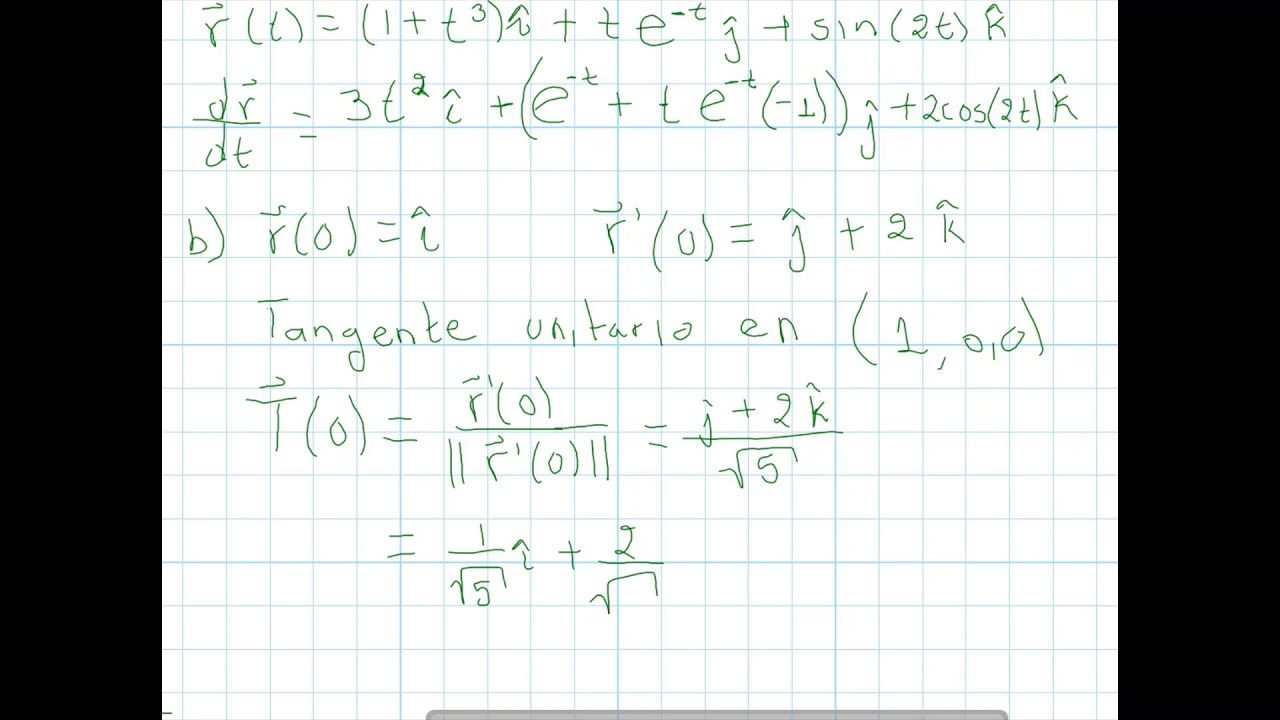 r⃗(t) = (1 + t³)î + t e⁻ᵗ ĵ + sin(2t) k̂
dr⃗/dt = 3t² î + (e⁻ᵗ + t e⁻ᵗ (-1)) ĵ + 2cos(2t) k̂
b) r⃗(0) = î r⃗'(0) = ĵ + 2 k̂
Tangente unitario en (1, 0,0)
T⃗(0) = r⃗'(0)/||r⃗'(0)|| = (ĵ + 2k̂)/√5
= 1/√5 î + 2/√